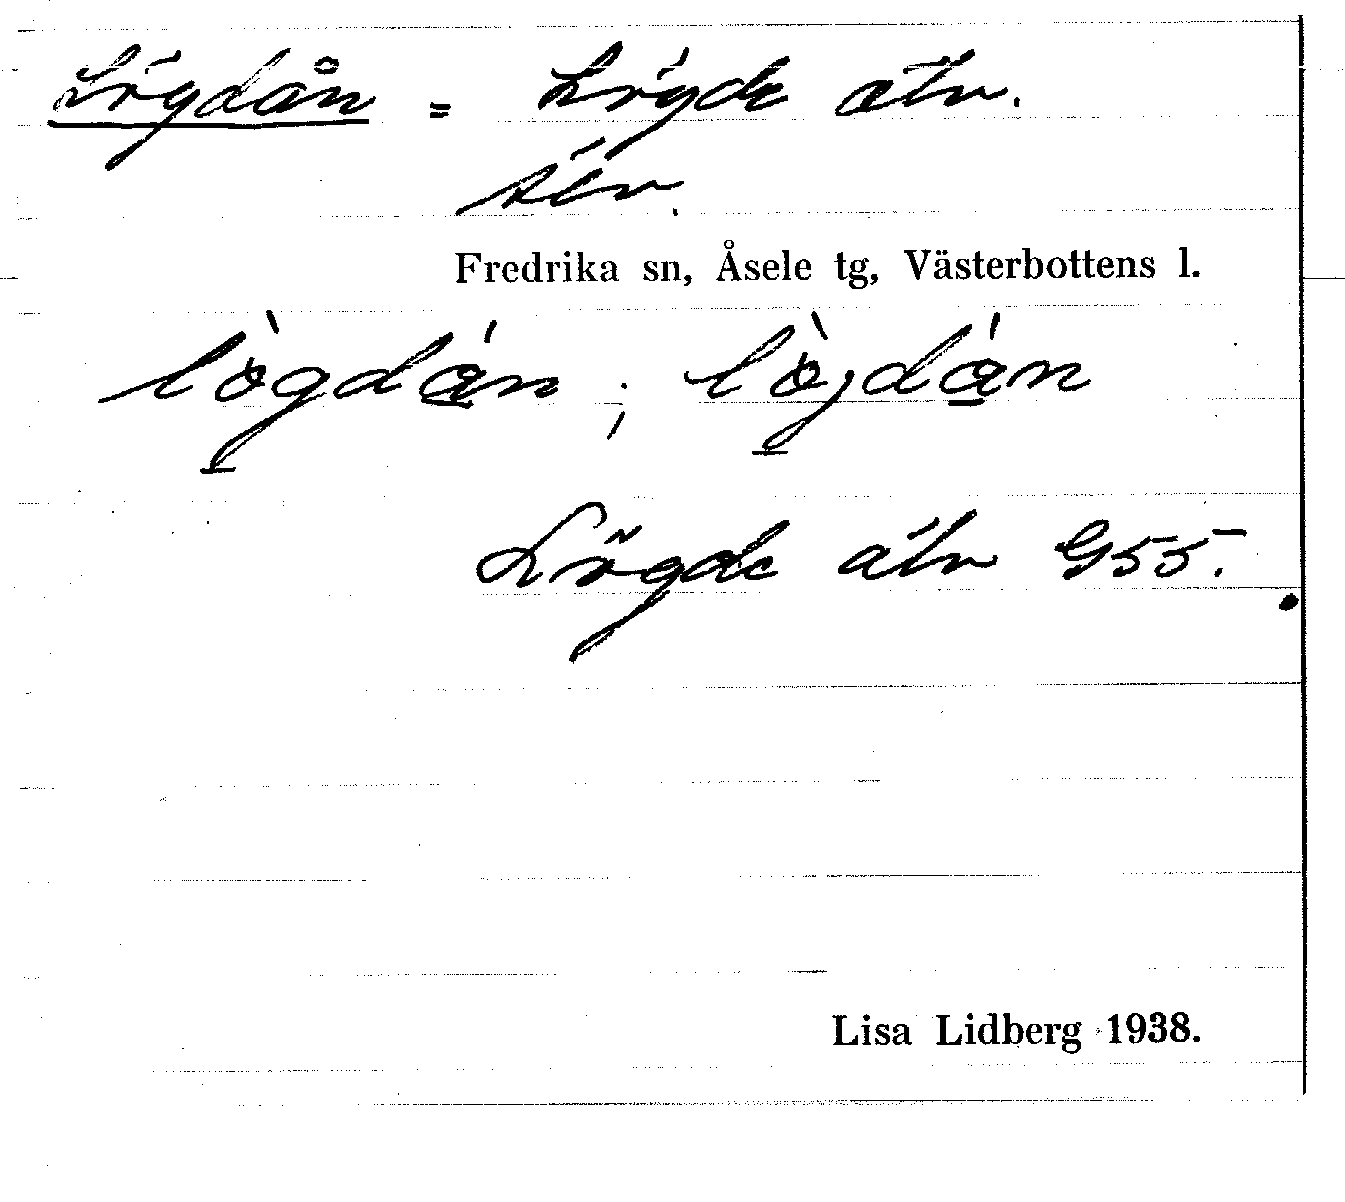 Lögdån = Lögde älv.
Älv.
Fredrika sn, Åsele tg, Västerbottens l.
lògdán ; lòjdán
Lögde älv G55.
Lisa Lidberg 1938.